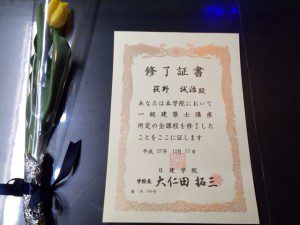 修了証書
荻野 誠浩 殿
あなたは本学院において
一級建築士講座
所定の全課程を修了した
ことをここに証します
平成 27年 12月 17日
日建学院
学院長 大仁田 拓三